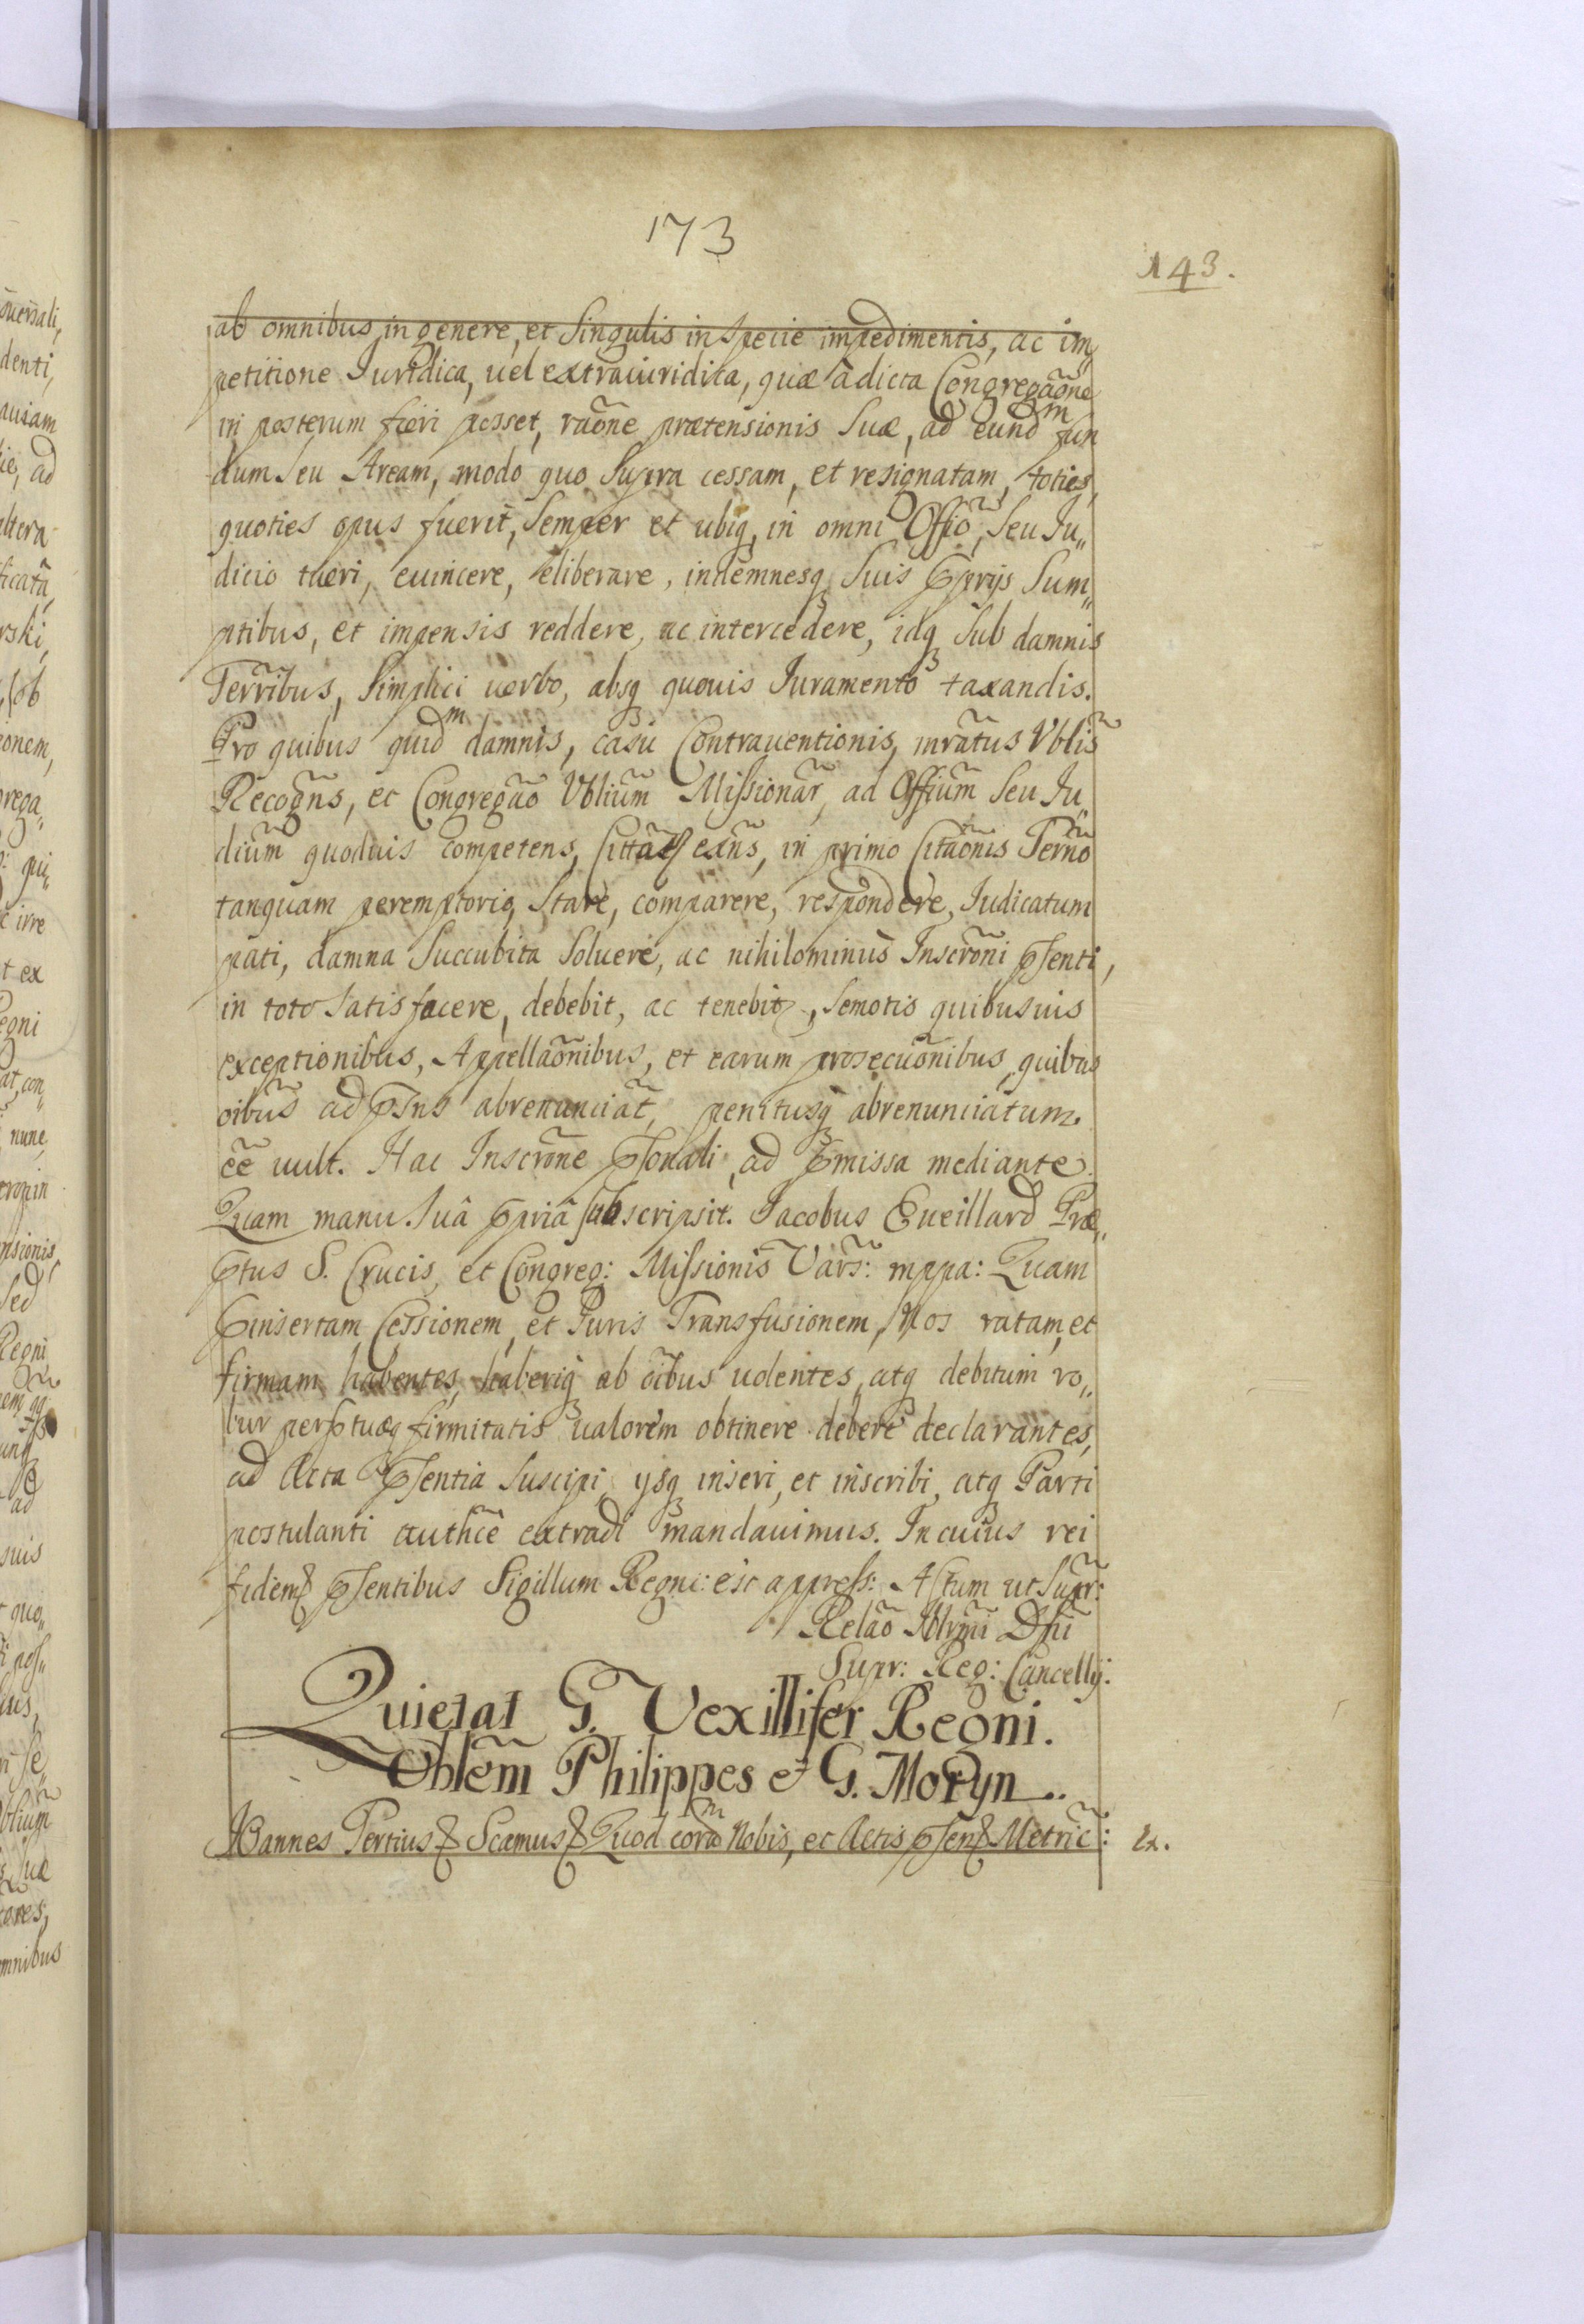 173
143.
ab omnibus in genere, et Singulis in Specie impedimentis, ac im„
petitione Iuridica, uel extraiuridica, quæ à dicta Congregaõne
in posterum fieri posset, raõne prætensionis Suæ, ad eundm fun
dum Seu Aream, modo quo Supra cessam, et resignatam, toties,
quoties opus fuerit, Semper et ubiq, in omni Offiõ, Seu Iu„
dicio tueri, euincere, eliberare, indemnesq Suis pprijs Sum„
ptibus, et impensis reddere, ac intercedere, idq Sub damnis
Terr̃ibus, Simplici uerbo, absq quouis Iuramento taxandis.
Pro quibus quidm damnis, casu Contrauentionis, inrãtus Vblis̃
Recogñs, et Congregaõ Vbliũm Missionar̃, ad Offiũm Seu Iu„
diũm quoduis competens, Citta exñs, in primo Citaõnis Terñõ
tanquam peremptorio, Stare, comparere, respondere, Iudicatum
pati, damna Succubita Soluere, ac nihilominus Inscrõni pSenti,
in toto Satisfacere, debebit, ac tenebit, Semotis quibusuis
exceptionibus, Appellaõnibus, et earum prosecuõnibus, quibus
oĩbus ad pSns abrenunciãt, penitusq abrenunciatum
eẽ uult. Hac Inscrõne pSonali, ad pmissa mediante.
Quam manu Suâ ppriâ subscripsit. Jacobus Eueillard Præ„
ptus S. Crucis, et Congreg: Missionis Vars̃: mppa: Quam
pinsertam Cessionem, et Iuris Transfusionem, Nos ratam, et
firmam habentes, haberiq ab oĩbus uolentes, atq debitum ro„
bur perptuæq firmitatis ualorem obtinere debere declarantes,
ad Acta pSentia Suscipi, ysq inseri, et inscribi, atq Parti
postulanti authcẽ extradi mandauimus. In cuius rei
fidem pSentibus Sigillum Regni: est appress: Actum ut Supr̃:
Relaõ Illrm̃i Dñi
Supr: Reg: Cancellÿ:
Quietat G. Vexillifer Regni.
Noblẽm Philippes et G. Moryn..
Ioannes Tertius Scæmus Quod coram Nobis, et Actis pSen Metric̃: